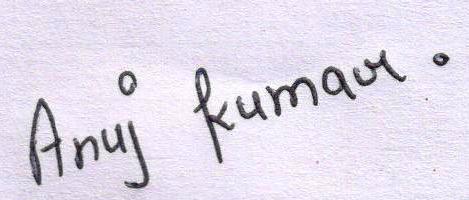 Anuj kumar.